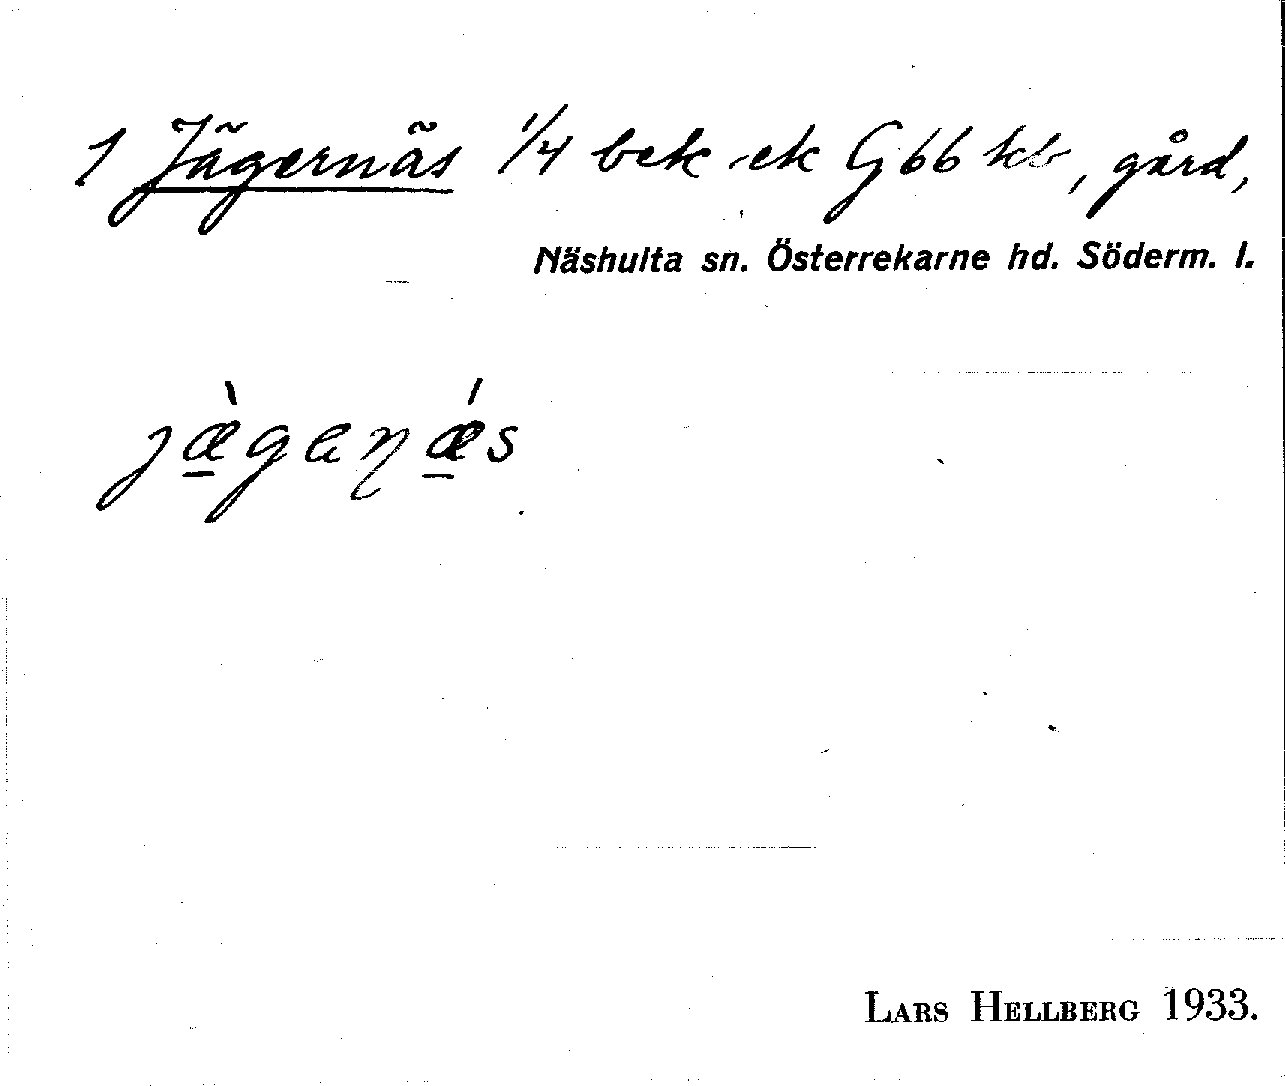 1 Jägernäs 1/4 bek ek G66 kb, gård,
Näshulta sn. Österrekarne hd. Söderm. l.
jæ̲̀gaɳǽ̲s
LARS HELLBERG 1933.